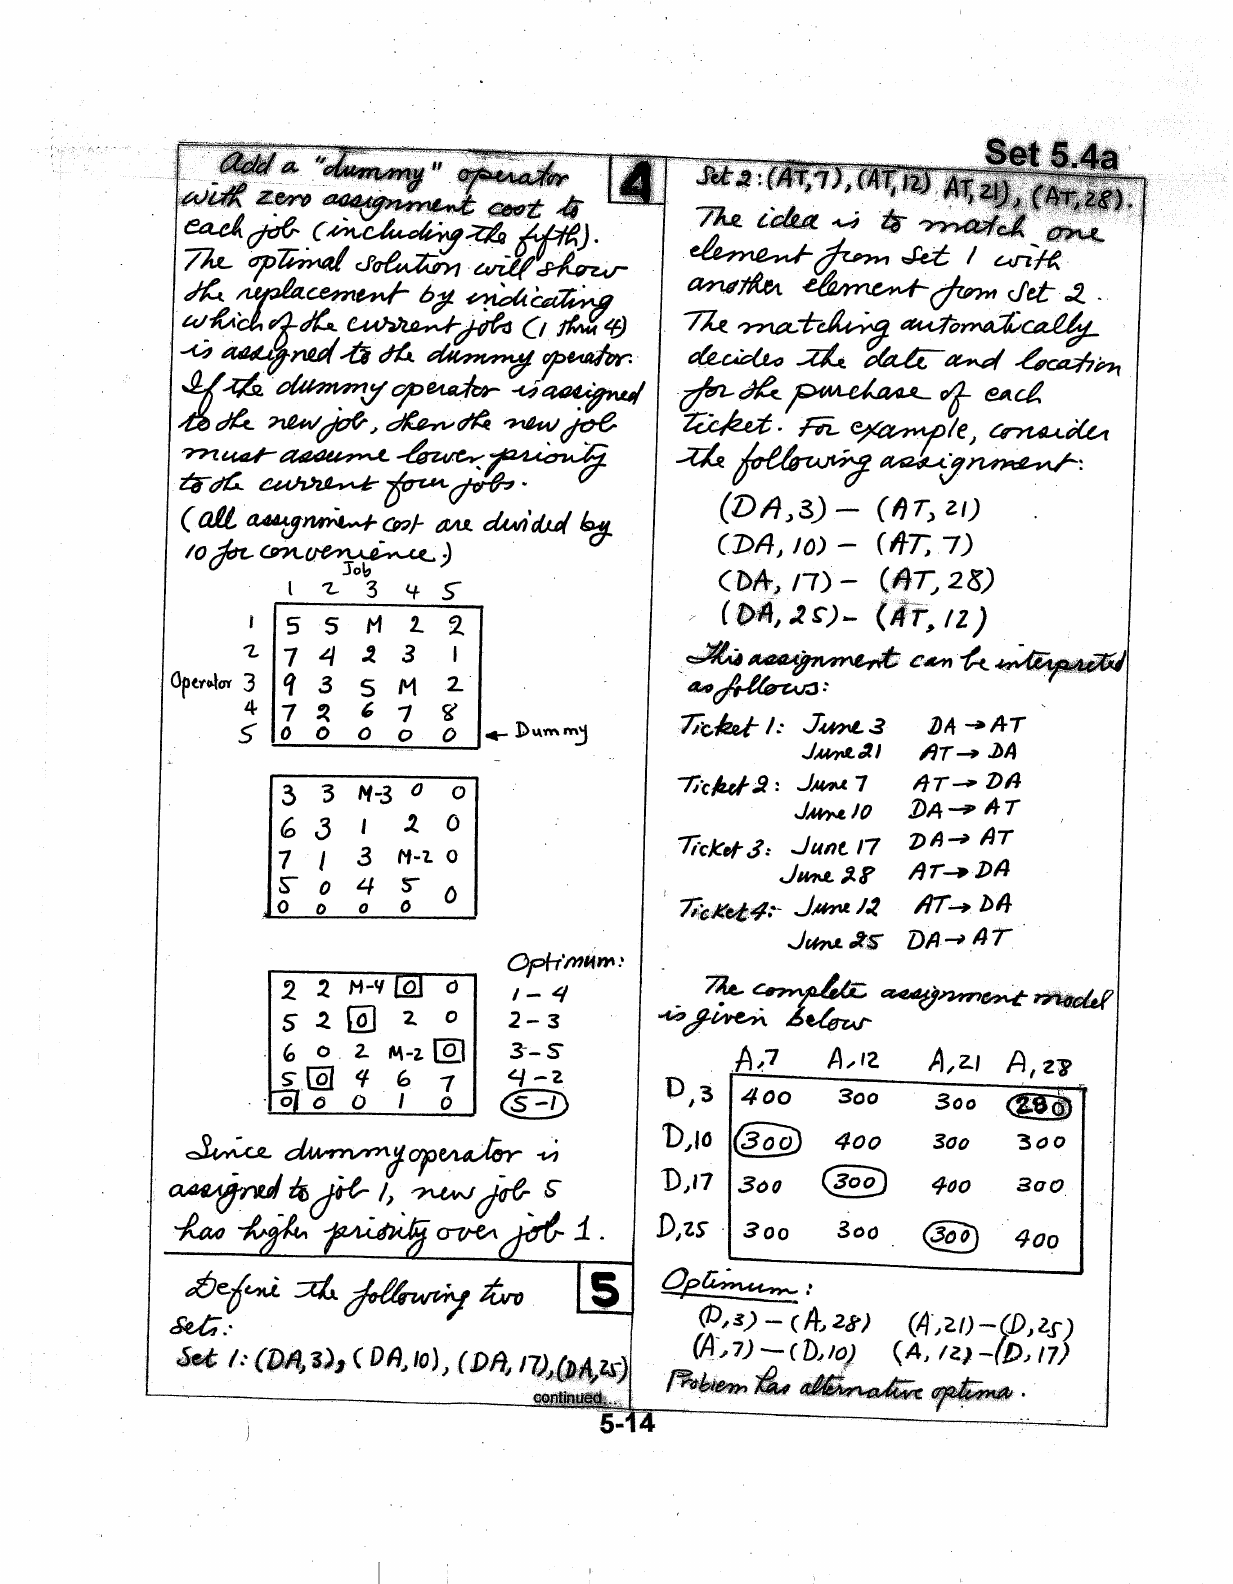 Set 5.4a
Add a "dummy" operator
4
with zero assignment cost to
each job (including the fifth).
The optimal solution will show
the replacement by indicating
which of the current jobs (1 thru 4)
is assigned to the dummy operator.
If the dummy operator is assigned
to the new job, then the new job
must assume lower priority
to the current four jobs.
(all assignment cost are divided by
10 for convenience.)
Job
1 2 3 4 5
1 5 5 M 2 2
2 7 4 2 3 1
Operator 3 9 3 5 M 2
4 7 2 6 7 8
5 0 0 0 0 0 ← Dummy
3 3 M-3 0 0
6 3 1 2 0
7 1 3 M-2 0
5 0 4 5 0
0 0 0 0
Optimum:
2 2 M-4 0 0 1-4
5 2 0 2 0 2-3
6 0 2 M-2 0 3-5
5 0 4 6 7 4-2
0 0 0 1 0 5-1
Since dummy operator is
assigned to job 1, new job 5
has higher priority over job 1.
Define the following two
5
Sets:
Set 1: (DA,3), (DA,10), (DA,17), (DA,25)
continued...
Set 2: (AT,7), (AT,12) AT,21), (AT,28).
The idea is to match one
element from Set 1 with
another element from Set 2.
The matching automatically
decides the date and location
for the purchase of each
ticket. For example, consider
the following assignment:
(DA,3) - (AT,21)
(DA,10) - (AT,7)
(DA,17) - (AT,28)
(DA,25) - (AT,12)
This assignment can be interpreted
as follows:
Ticket 1: June 3 DA → AT
June 21 AT → DA
Ticket 2: June 7 AT → DA
June 10 DA → AT
Ticket 3: June 17 DA → AT
June 28 AT → DA
Ticket 4: June 12 AT → DA
June 25 DA → AT
The complete assignment model
is given below
A,7 A,12 A,21 A,28
D,3 400 300 300 280
D,10 300 400 300 300
D,17 300 300 400 300
D,25 300 300 300 400
Optimum:
(D,3) - (A,28) (A,21) - (D,25)
(A,7) - (D,10) (A,12) - (D,17)
Problem has alternative optima.
5-14